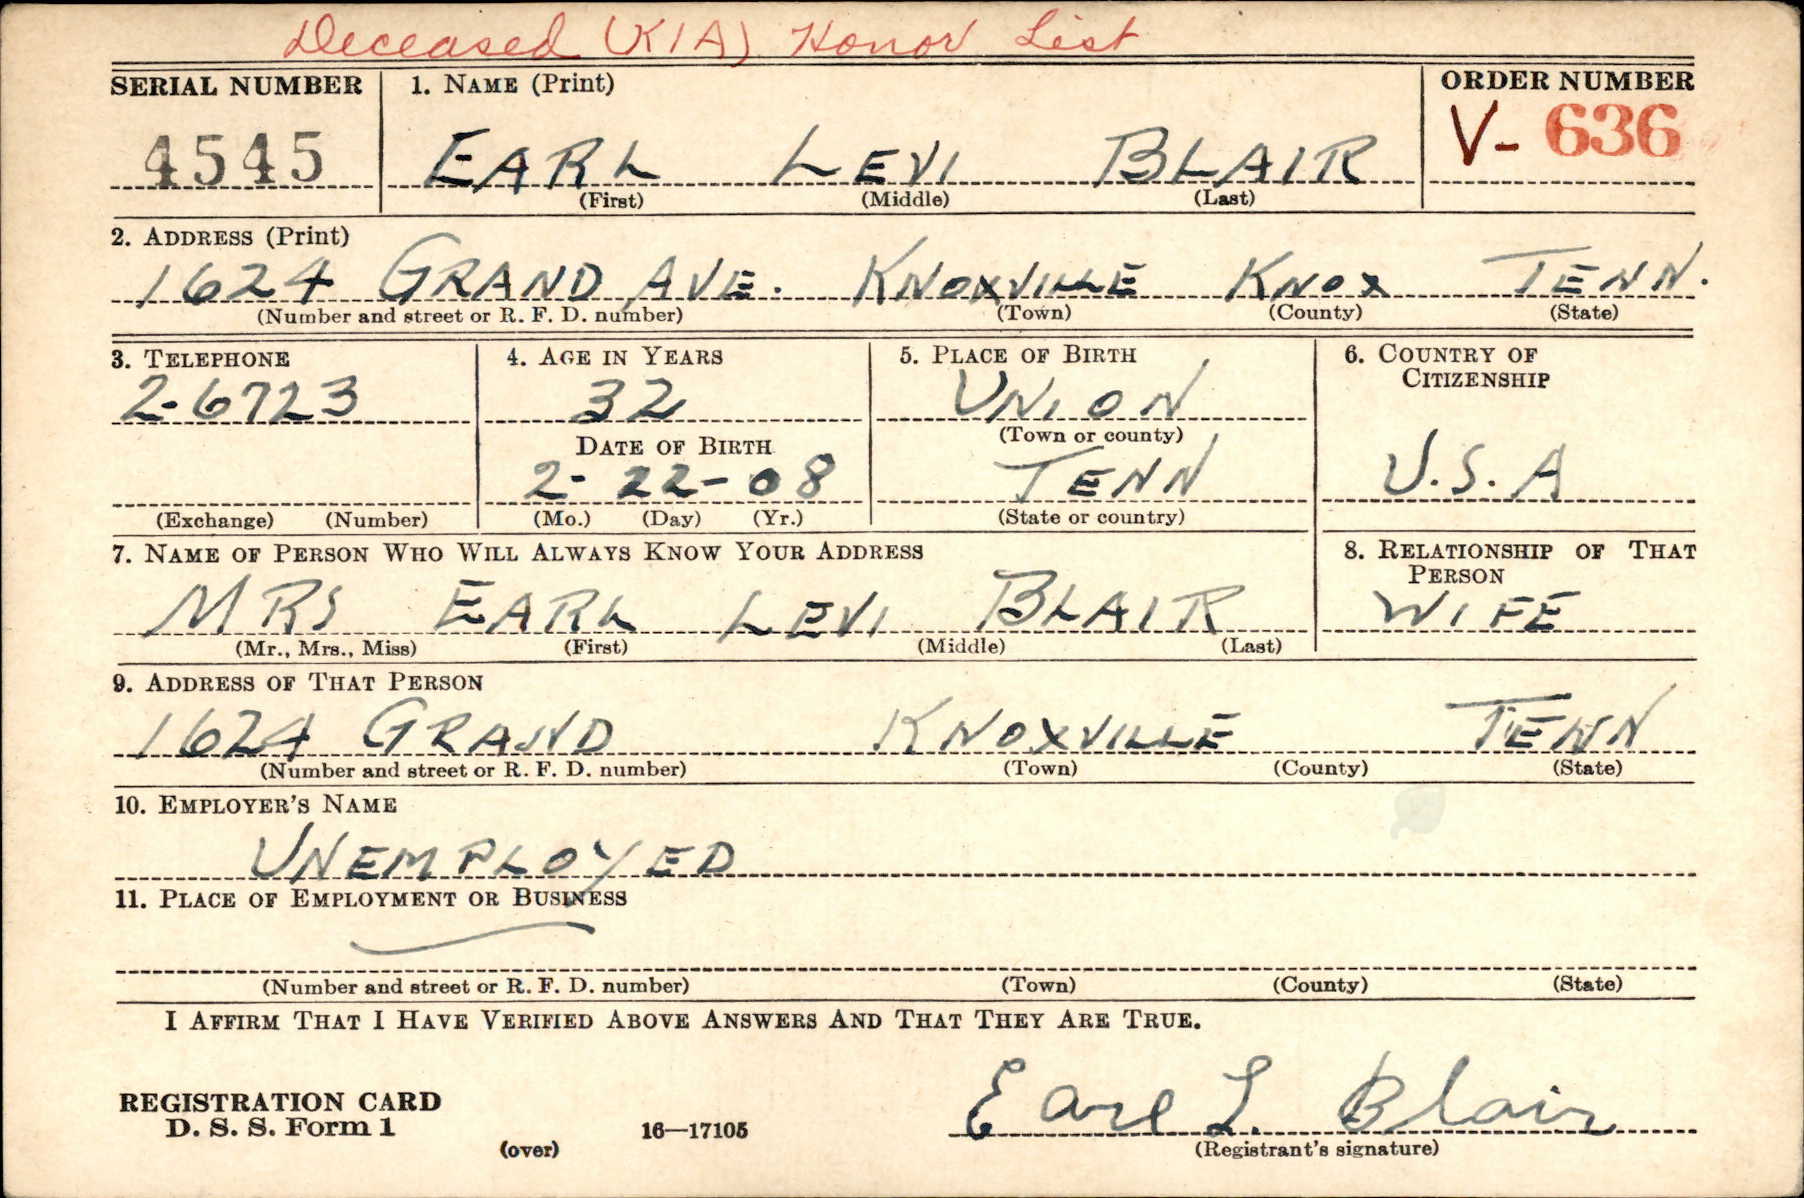 Deceased (KIA) Honor List
SERIAL NUMBER 1. NAME (Print) ORDER NUMBER
4545 EARL LEVI BLAIR V-636
(First) (Middle) (Last)
2. ADDRESS (Print)
1624 GRAND AVE. KNOXVILLE KNOX TENN.
(Number and street or R. F. D. number) (Town) (County) (State)
3. TELEPHONE 4. AGE IN YEARS 5. PLACE OF BIRTH 6. COUNTRY OF CITIZENSHIP
2-6723 32 UNION
(Town or county)
DATE OF BIRTH
2-22-08 TENN U.S.A
(Exchange) (Number) (Mo.) (Day) (Yr.) (State or country)
7. NAME OF PERSON WHO WILL ALWAYS KNOW YOUR ADDRESS 8. RELATIONSHIP OF THAT PERSON
MRS EARL LEVI BLAIR WIFE
(Mr., Mrs., Miss) (First) (Middle) (Last)
9. ADDRESS OF THAT PERSON
1624 GRAND KNOXVILLE TENN
(Number and street or R. F. D. number) (Town) (County) (State)
10. EMPLOYER'S NAME
UNEMPLOYED
11. PLACE OF EMPLOYMENT OR BUSINESS
(Number and street or R. F. D. number) (Town) (County) (State)
I AFFIRM THAT I HAVE VERIFIED ABOVE ANSWERS AND THAT THEY ARE TRUE.
REGISTRATION CARD
D. S. S. Form 1 Earl L. Blair
(over) 16—17105 (Registrant's signature)